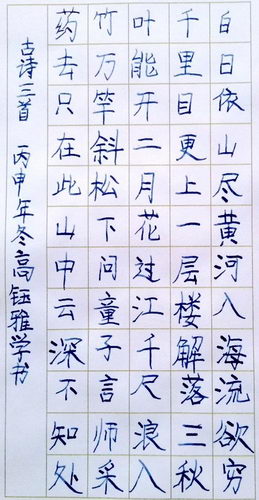 白日依山尽黄河入海流欲穷
千里目更上一层楼解落三秋
叶能开二月花过江千尺浪入
竹万竿斜松下问童子言师采
药去只在此山中云深不知处
古诗三首 丙申年冬高钰雅学书